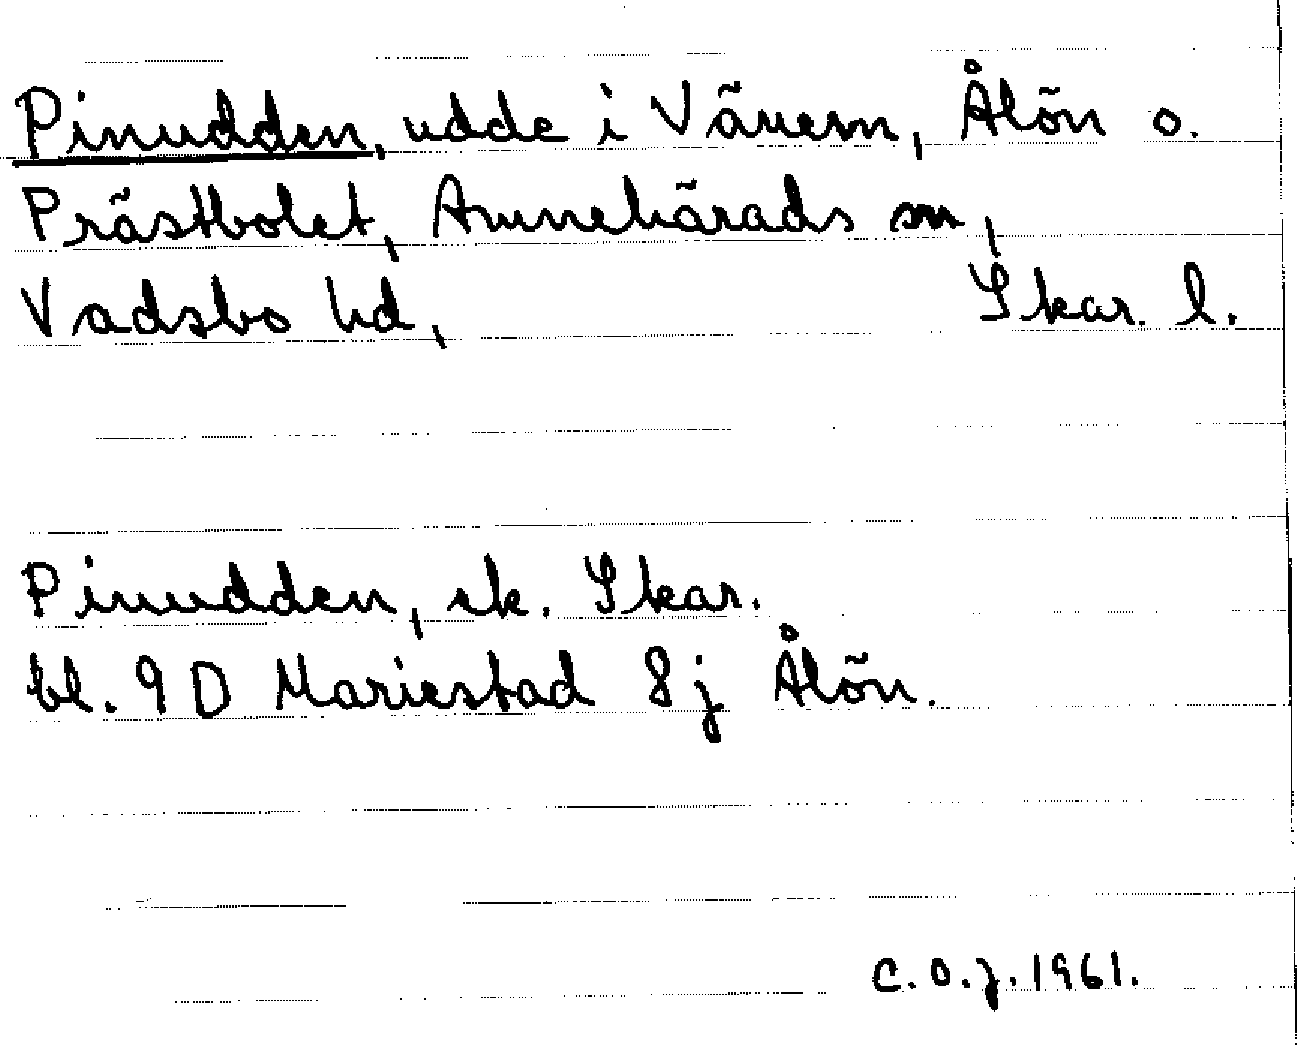 Pinudden, udde i Vänern, Ålön o.
Prästbolet, Amnehärads sn,
Vadsbo hd, Skar. l.
Pinudden, ek. Skar.
bl. 9 D Mariestad 8 j Ålön.
C.O.J. 1961.